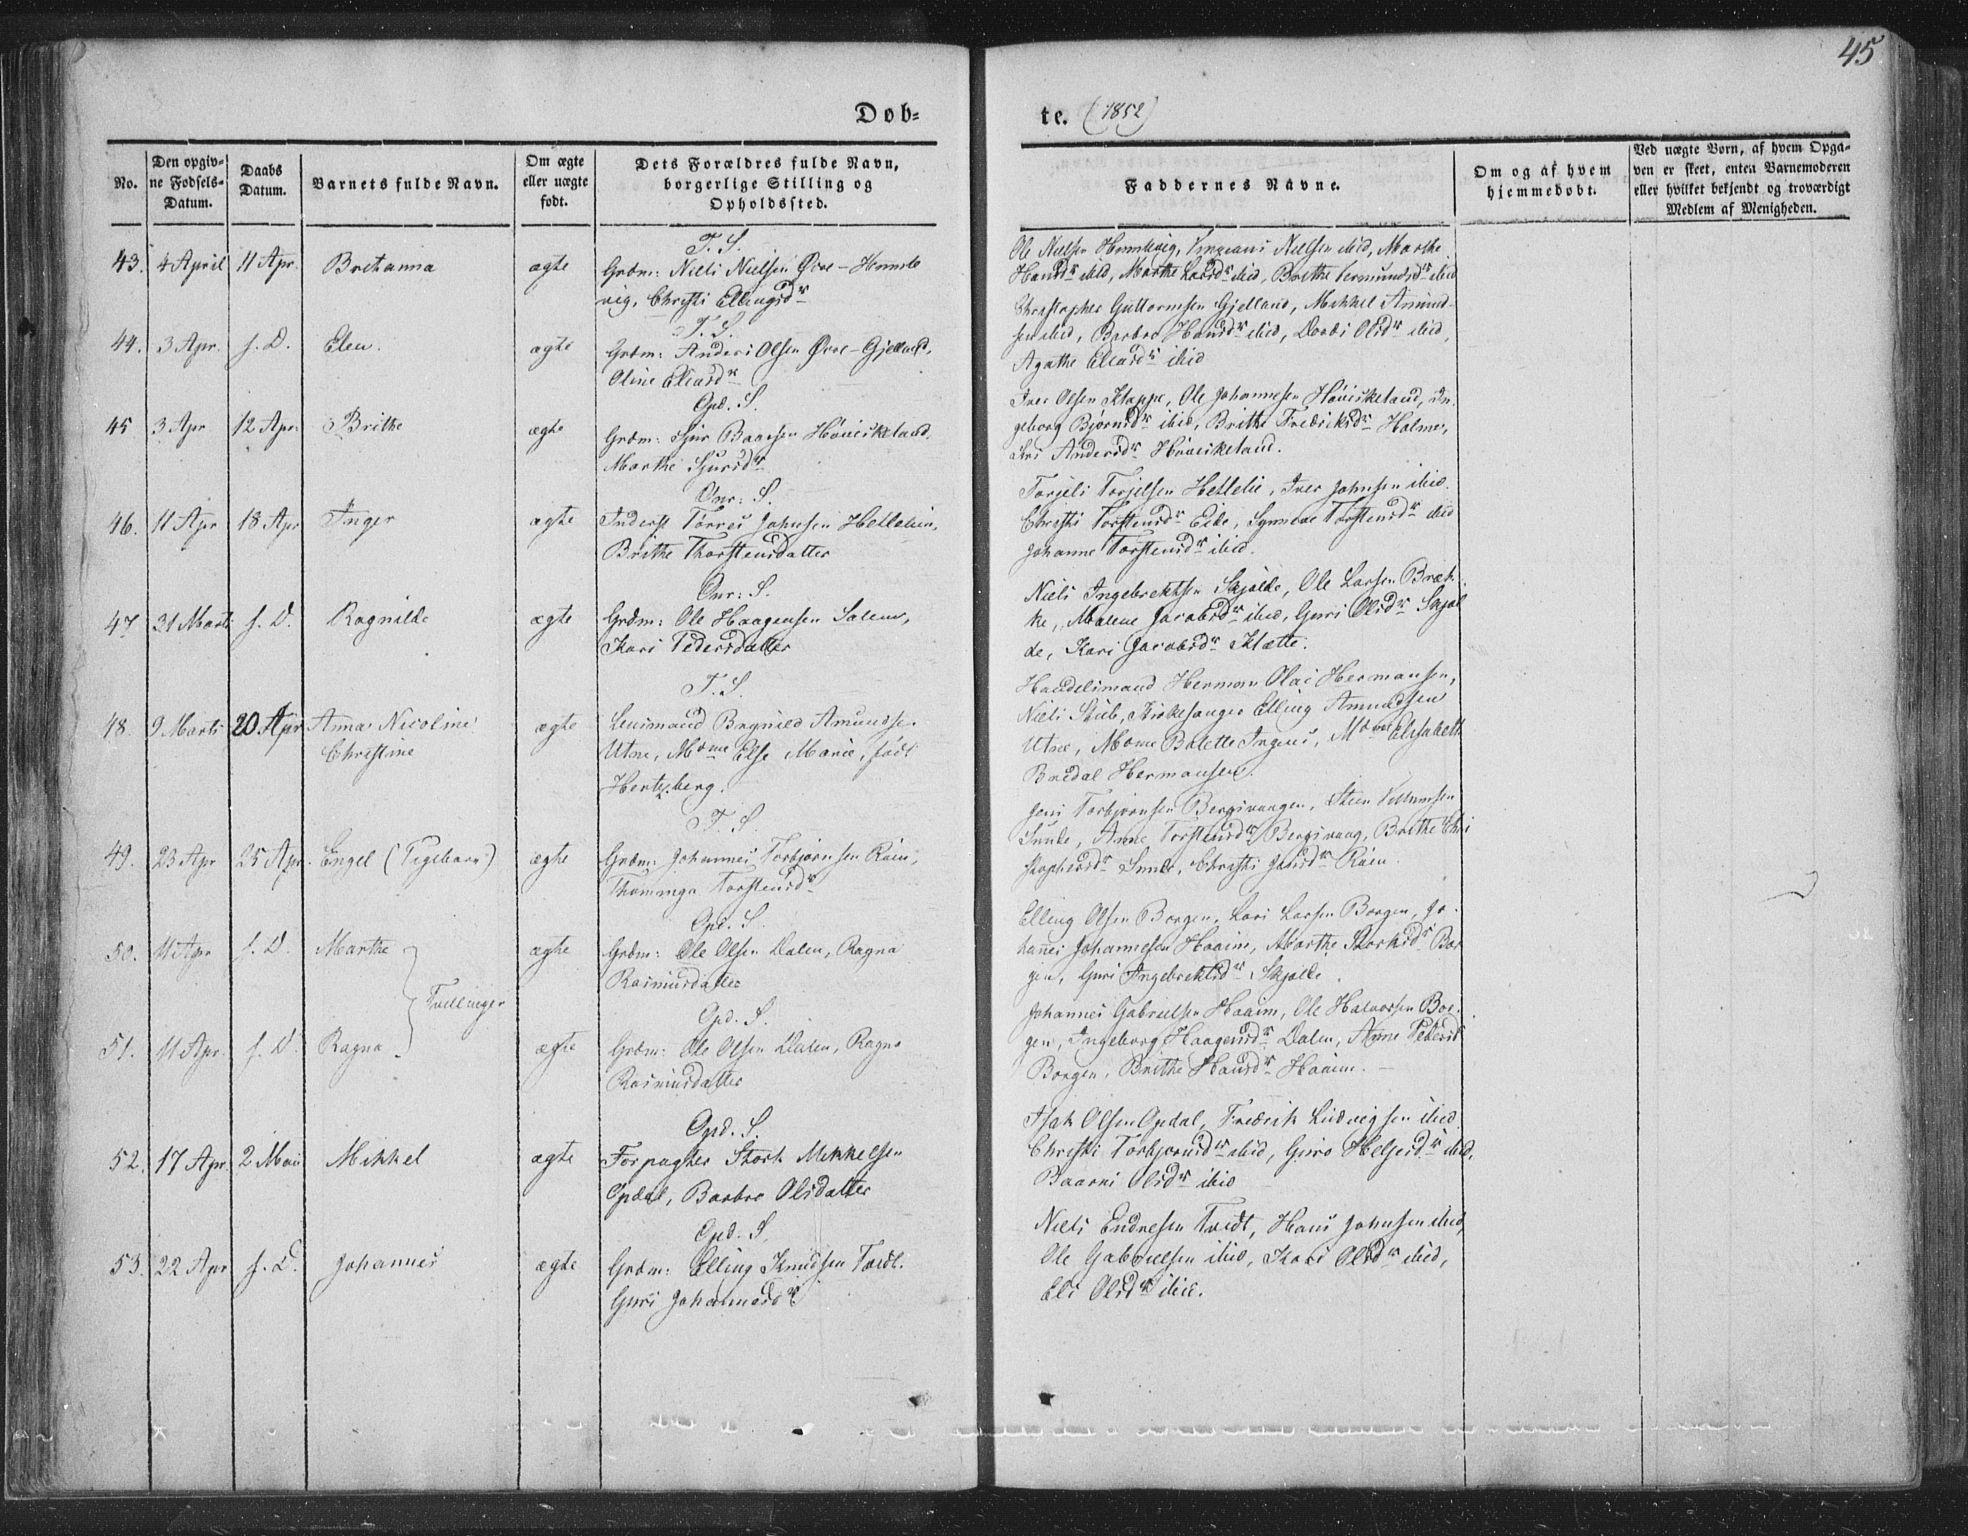 45
Døb-
te. (1852)
No.
Den opgiv-
ne Fødsels-
Datum.
Daabs
Datum.
Barnets fulde Navn.
Om ægte
eller uægte
født.
Dets Forældres fulde Navn,
borgerlige Stilling og
Opholdssted.
Faddernes Navne.
Om og af hvem
hjemmedøbt.
Ved uægte Børn, af hvem Opga-
ven er skeet, enten Barnemoderen
eller hvilket bekjendt og troværdigt
Medlem af Menigheden.
T. S.
43. 4 April 11 Apr. Britanna ægte Grdm: Niels Nielsen Øvre-Humle
vig, Christi Ellingsdr
Ole Nielsen Humlevig, Nielsen ibid, Marthe
Hansdr ibid, Marthe Larsdr ibid, Brithe Vermundsdr ibid
T. S.
44. 3 Apr. s. D. Elen. ægte Grdm: Anders Olsen Øvre-Gjelland,
Oline Eliasdr
Christopher Guttormsen Gjelland, Mikkel Amund-
sen ibid, Barbro Hansdr ibid, Dordi Olsdr ibid,
Agathe Eliasdr ibid
Opd. S.
45 3 Apr 12 Apr. Brithe ægte Grdm: Sjur Baarsen Høviskeland,
Marthe Sjursdr
Iver Olsen Klappe, Ole Johannesen Høviskeland, In-
geborg Bjørnsdr ibid, Brithe Fredriksdr Holme,
Siri Andersdr Høviskeland.
Onr: S.
46. 11 Apr 18 Apr Inger ægte Inderst Torres Johnsen Hetlelien,
Brithe Thorstensdatter
Torjels Torjelsen Hetlelie, Iver Johnsen ibid.
Christi Torstensdr Eide, Synneve Torstensdr ibid
Johanne Torstensdr ibid.
Onr: S.
47 31 Marts s. D. Ragnilde ægte Grdm: Ole Haagensen Salem,
Kari Pedersdatter
Niels Ingebrektsen Skjølde, Ole Larsen Bræk-
ke, Malene Jacobsdr ibid, Guri Olsdr Skjøl
de, Kari Jacobsdr Klette.
T. S.
48. 9 Marts 20 Apr Anna Nicoline
Christine ægte Lensmand Brynild Amundsen
Utne, Mome Else Marie, født
Hertzberg.
Handelsmand Herman Olai Hermansen,
Niels Skib, Kirkesanger Elling Amundsen
Utne, Mome Bolette Ingens, Mome Elisabeth
Bredal Hermansen.
T. S.
49. 23 Apr 25 Apr. Engel (Pigebarn) ægte Grdm: Johannes Torbjørnsen Røen,
Torstensdr
Jens Torbjørnsen Bergsvaagen, Steen
Sunde, Anne Torstensdr Bergsvaag, Brithe Chri
stophersdr Sunde, Christi Jonsdr Røen.
Opd. S.
50. 11 Apr s. D. Marthe ægte Grdm: Ole Olsen Dalen, Ragna
Rasmusdatter
Tvillinger
Elling Olsen Borgen, Lars Larsen Borgen, Jo-
hannes Johannesen Haaim, Marthe Storksdr Bor
gen, Guri Ingebrektsdr Skjølde.
Opd. S.
51. 11 Apr. s. D. Ragna ægte Grdm: Ole Olsen Dalen, Ragna
Rasmusdatter
Johannes Gabrielsen Haaim, Ole Halvorsen Bor-
gen, Ingeborg Haagensdr Dalen, Anne Pedersdr
Borgen, Brithe Hansdr Haaim.
Opd. S.
52. 17 Apr. 2 Mai Mikkel ægte Forpagter Stork Mikkelsen
Opdal, Barbro Olsdatter
Isak Olsen Opdal, Fredrik Ludvigsen ibid
Christi Torbjørnsdr ibid, Guro Helgesdr ibid,
Baarni Olsdr ibid
Opd. S.
53. 22 Apr s. D. Johannes ægte Grdm: Elling Knudsen Tvedt.
Guri Johannesdr
Niels Endresen Tvedt, Hans Johnsen ibid,
Ole Gabrielsen ibid, Kari Olsdr ibid,
Eli Olsdr ibid.